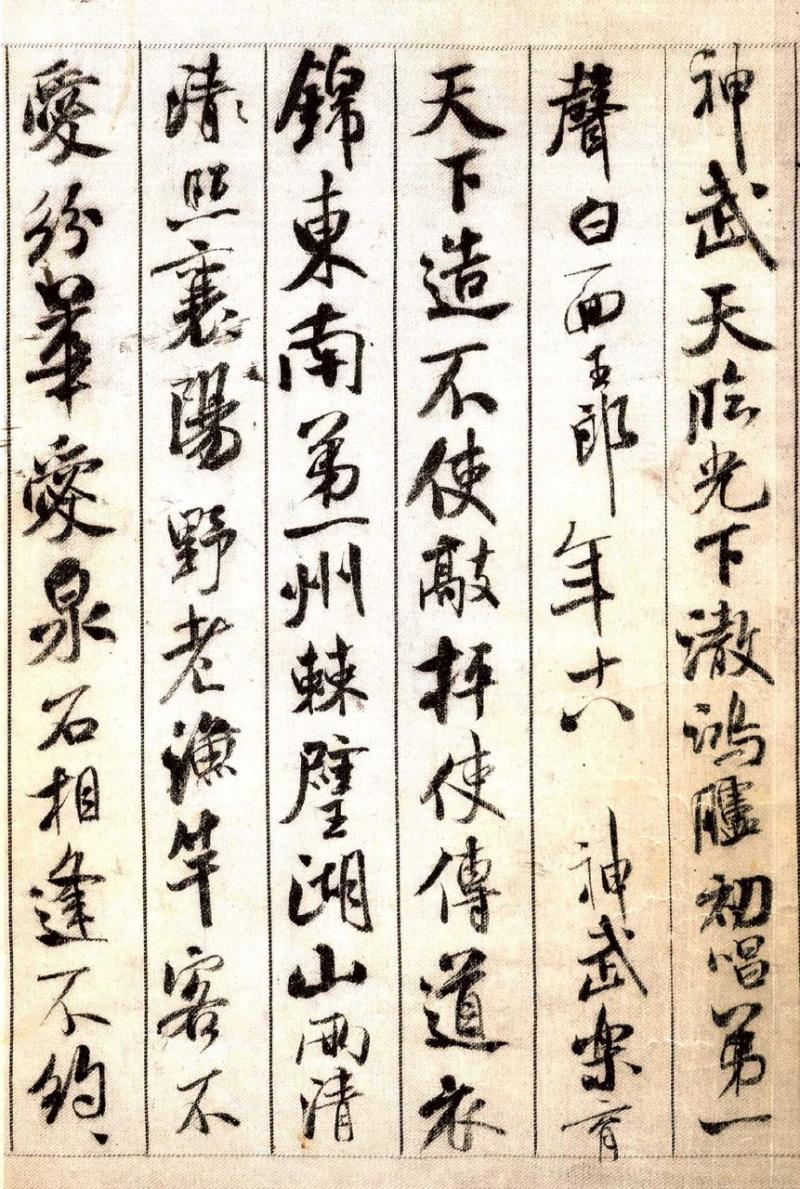 神武天臨光下澈鴻臚初唱第一
聲白面玉郎年十八 神武樂育
天下造不使敲枰使傳道衣
錦東南第一州棘璧湖山兩清
清〻照襄陽野老漁竿客不
愛紛華愛泉石相逢不約〻